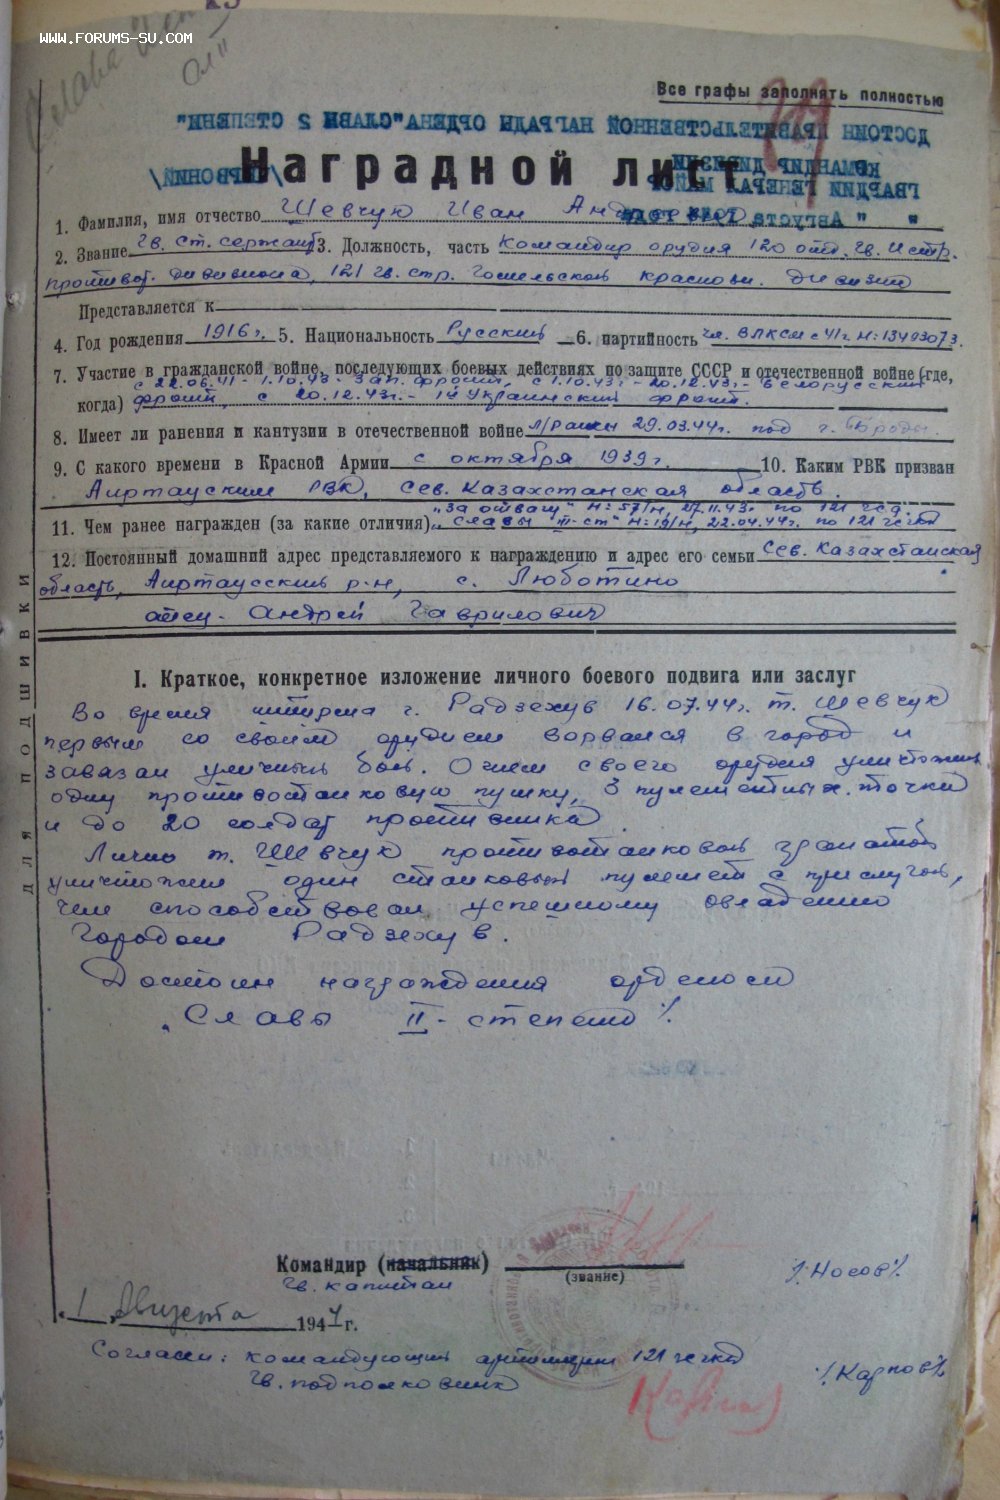 WWW.FORUMS-SU.COM
Слава
Все графы заполнять полностью
ДОСТОИН ПРАВИТЕЛЬСТВЕННОЙ НАГРАДЫ ОРДЕНА "СЛАВЫ 2 СТЕПЕНИ"
Наградной лист
КОМАНДИР ДИВИЗИИ
ГВАРДИИ ГЕНЕРАЛ МАЙОР
" " Августа 1944 года
1. Фамилия, имя отчество Шевчук Иван Андреевич
2. Звание Гв. ст. сержант 3. Должность, часть Командир орудия 120 отд. Гв. Истр.
противот. дивизиона, 121 гв. стр. Гомельской краснозн. дивизии
Представляется к
4. Год рождения 1916 г. 5. Национальность Русский 6. партийность чл. ВЛКСМ с 41 г. Н: 13493073.
7. Участие в гражданской войне, последующих боевых действиях по защите СССР и отечественной войне (где,
с 22.06.41 - 1.10.43 - Зап. фронт, с 1.10.43 г. - 20.12.43 г. - Белорусский
когда) фронт, с 20.12.43 г. - 1й Украинский фронт.
8. Имеет ли ранения и кантузии в отечественной войне л/ранен 29.03.44 г. под г. Броды.
9. С какого времени в Красной Армии с октября 1939 г. 10. Каким РВК призван
Аиртауским РВК, Сев. Казахстанская область.
"За отвагу" Н: 57/н, 27.11.43 г. по 121 гсд.
11. Чем ранее награжден (за какие отличия) "Славы III-ст" Н: 19/н, 22.04.44 г. по 121 гсккд
12. Постоянный домашний адрес представляемого к награждению и адрес его семьи Сев. Казахстанская
область, Аиртауский р-н, с. Люботино
отец - Андрей Гаврилович
I. Краткое, конкретное изложение личного боевого подвига или заслуг
Во время штурма г. Радзехув 16.07.44 г. т. Шевчук
первым со своим орудием ворвался в город и
завязал уличный бой. Огнем своего орудия уничтожил
одну противотанковую пушку, 3 пулеметных точки
и до 20 солдат противника.
Лично т. Шевчук противотанковой гранатой
уничтожил один станковый пулемет с прислугой,
чем способствовал успешному овладению
городом Радзехув.
Достоин награждения орденом
"Славы II - степени".
ДЛЯ ПОДШИВКИ
Командир (начальник)
(звание)
Гв. капитан
/Носов/.
1 Августа 1944 г.
Согласен: командующий артиллерии 121 гсккд
Гв. подполковник
/Карпов/